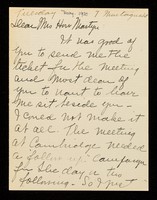 Tuesday 7 Montague St
Dear Mrs Her Martyn
It was good of
you to send me the
ticket for the meeting
and most dear of
you to want to have
me sit beside you -
I could not make it
at all. The meeting
at Cambridge needed
a follow up campaign
for the day or two
following. So I just